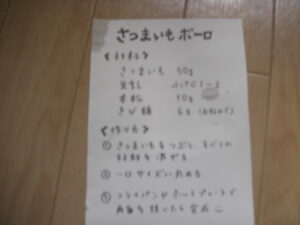 さつまいもボーロ
<材料>
さつまいも 50g
豆乳 小さじ1〜2
米粉 10g
きび糖 6g(お好みで)
<作り方>
① さつまいもをつぶし、すべての
材料を混ぜる
② 一口サイズに丸める
③ フライパンやホットプレートで
両面を焼いたら完成